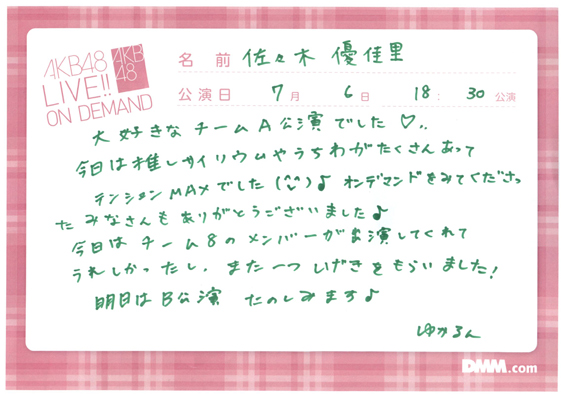 AKB48
LIVE!!
ON DEMAND
AKB
48
名 前 佐々木 優佳里
公演日 7月 6日 18:30公演
大好きな チームA公演でした♡..
今日は推しサイリウムやうちわがたくさんあって
テンションMAXでした(^^)♪ オンデマンドをみてくださっ
たみなさんもありがとうございました♪
今日は チーム8のメンバーが出演してくれて
うれしかったし、また一つ しげきをもらいました!
明日はB公演 たのしみます♪
ゆかるん
DMM.com